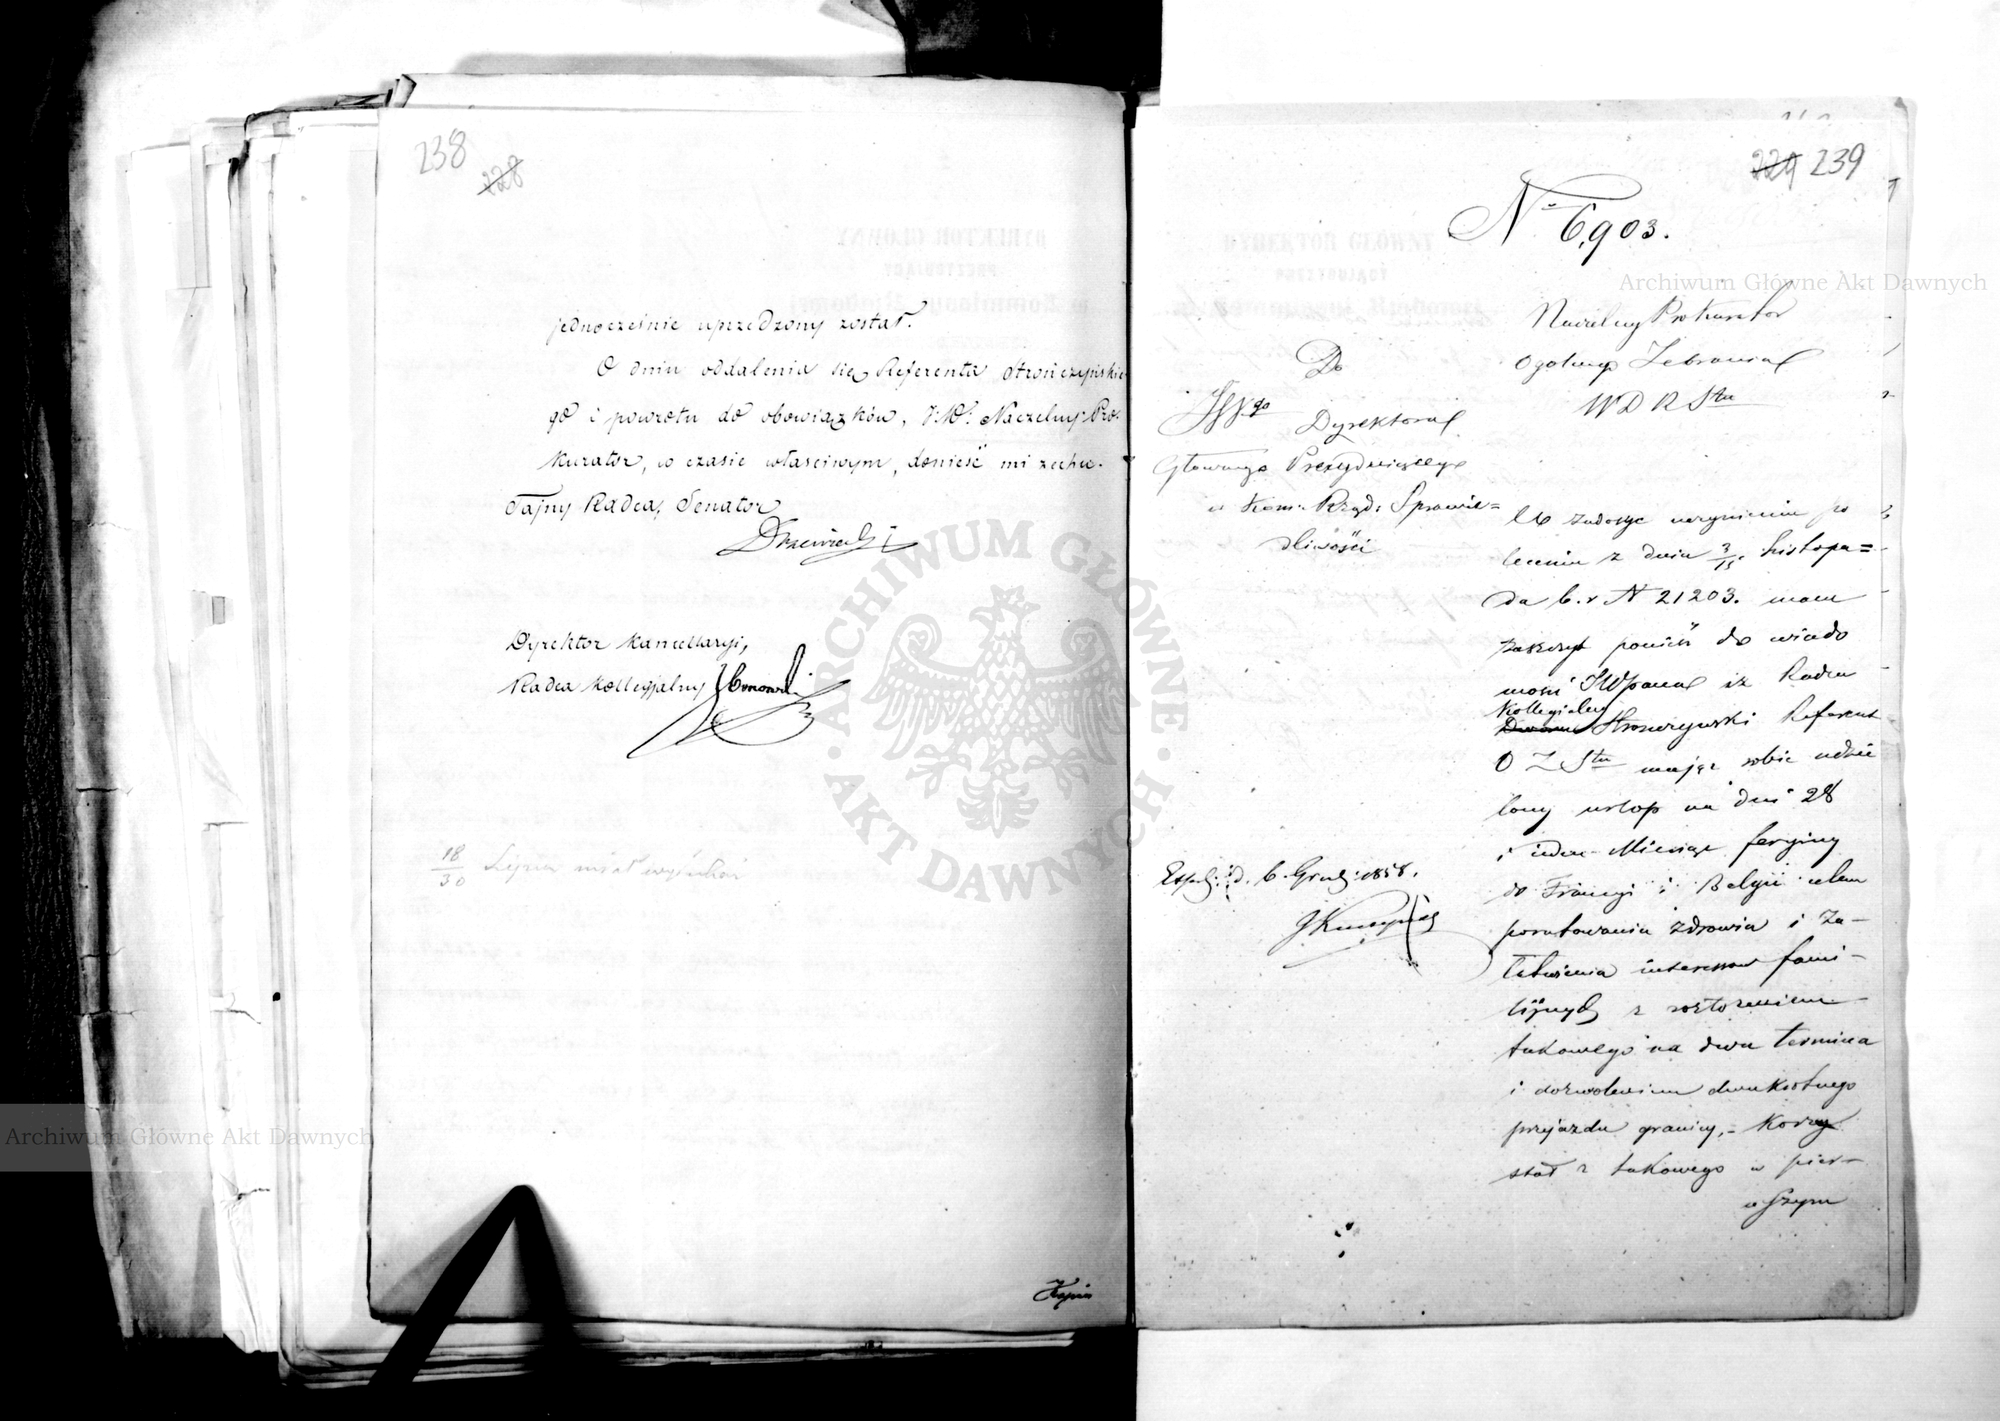 238
228
jednocześnie uprzedzony został.
O dniu oddalenia się Referenta Strończyńskie-
go i powrotu do obowiązków, J:W: Naczelny Pro-
kurator, w czasie właściwym, donieść mi zechce.
Tajny Radca, Senator
Drzewiecki
Dyrektor Kancellaryi,
Radca Kollegjalny
18/30 Lipca miał
Kopia
229 239
N° 6,903.
Naczelny Prokurator
Ogólnego Zebrania
W D R Stu
Do
JW go Dyrektora
Głównego Prezydującego
w Kom: Rząd: Sprawie=
dliwości
W zadosyć uczynieniu po
leceniu z dnia 3/15 Listopa=
da b. r N 21203. mam
zaszczyt ponieść do wiado
mości JWPana iż Radca
Kollegialny
Dworu Strończyński Referent
O Z Stu mając sobie udzie
lony urlop na dni 28
i ieden Miesiąc feryjny
do Francyi i Belgii celem
poratowania zdrowia i za-
łatwienia interessów fami-
lijnych z rozłożeniem
takowego na dwa termina
i dozwoleniem dwukrotnego
przejazdu granicy,- korzy
stał z takowego w pier-
wszym
Exped: d. 6. Grud: 1858.
ARCHIWUM GŁÓWNE
AKT DAWNYCH
Archiwum Główne Akt Dawnych
Archiwum Główne Akt Dawnych